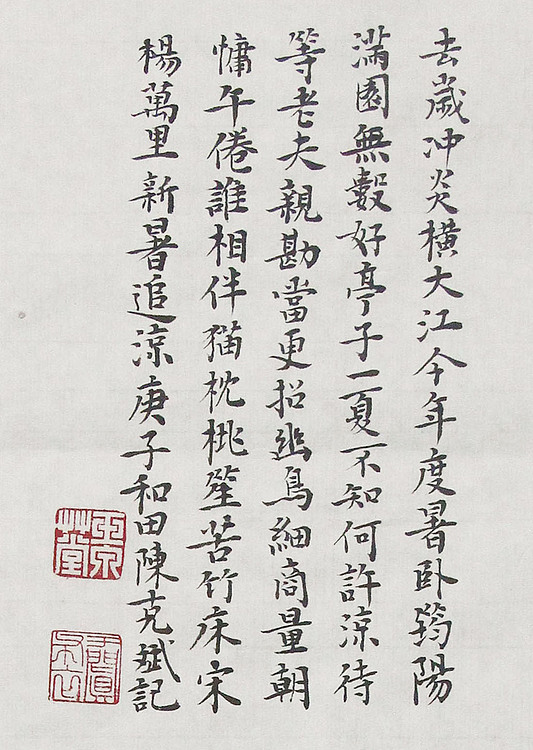 去歲冲炎橫大江今年度暑臥筠陽
滿園無數好亭子一夏不知何許涼待
等老夫親勘當更招幽鳥細商量朝
慵午倦誰相伴猫枕桃笙苦竹床宋
楊萬里新暑追涼庚子和田陳克斌記